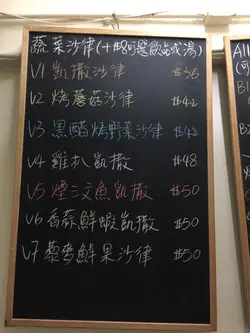 蔬菜沙律(十$8可選飲品或湯)
V1 凱撒沙律 $36
V2 烤蘑菇沙律 $42
V3 黑醋烤野菜沙律 $42
V4 雞扒凱撒 $48
V5 煙三文魚凱撒 $50
V6 香蒜鮮蝦凱撒 $50
V7 藜麥鮮果沙律 $50
All